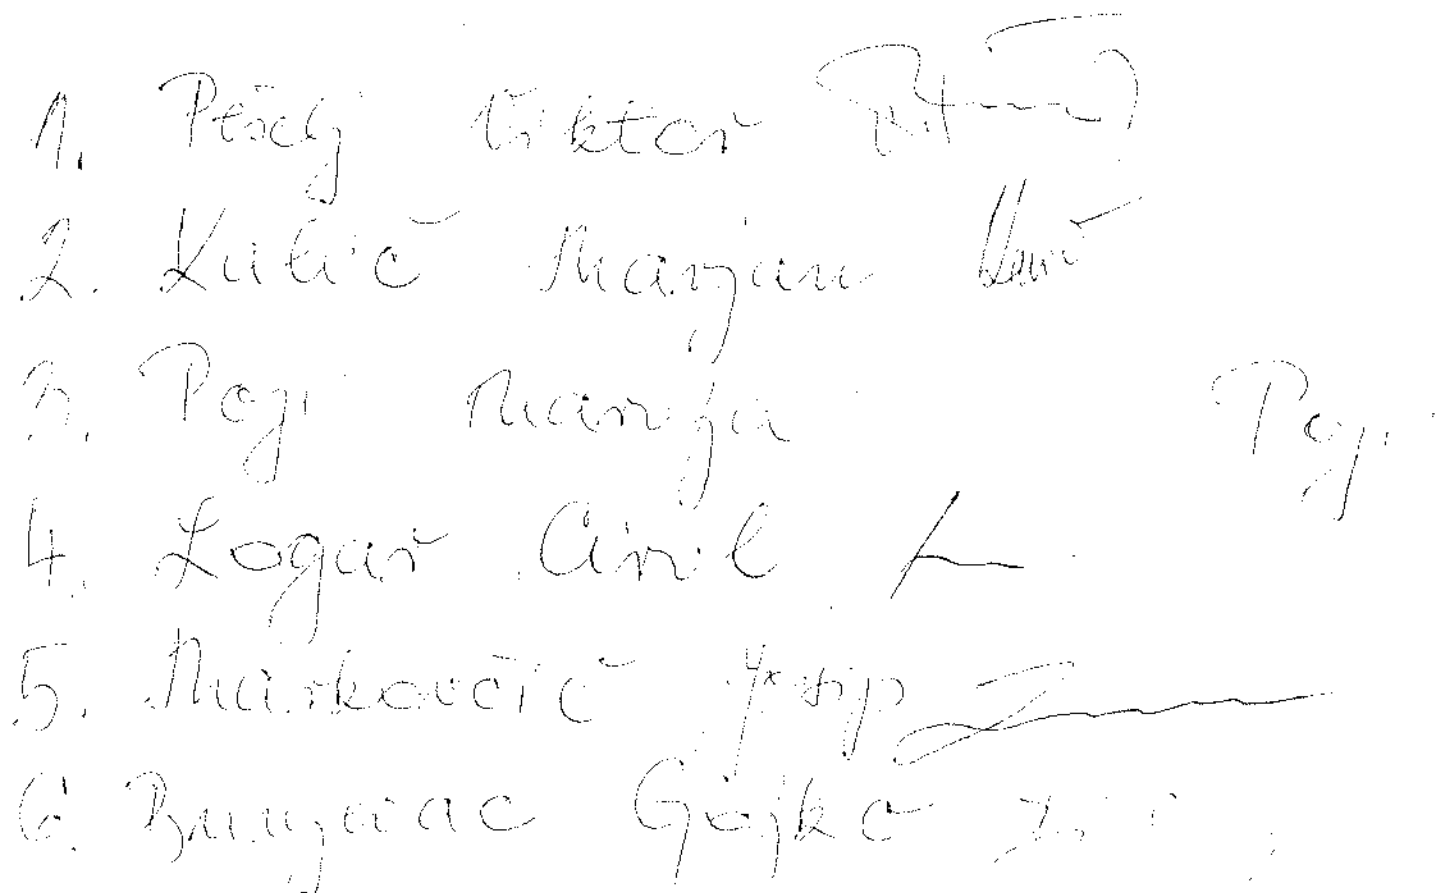 1. Viktor
2. Kulič Marjan
3. Poji Marija Poji
4. Logar Ciril
5. Markovčič Josip
6. Bunjevac Gojko